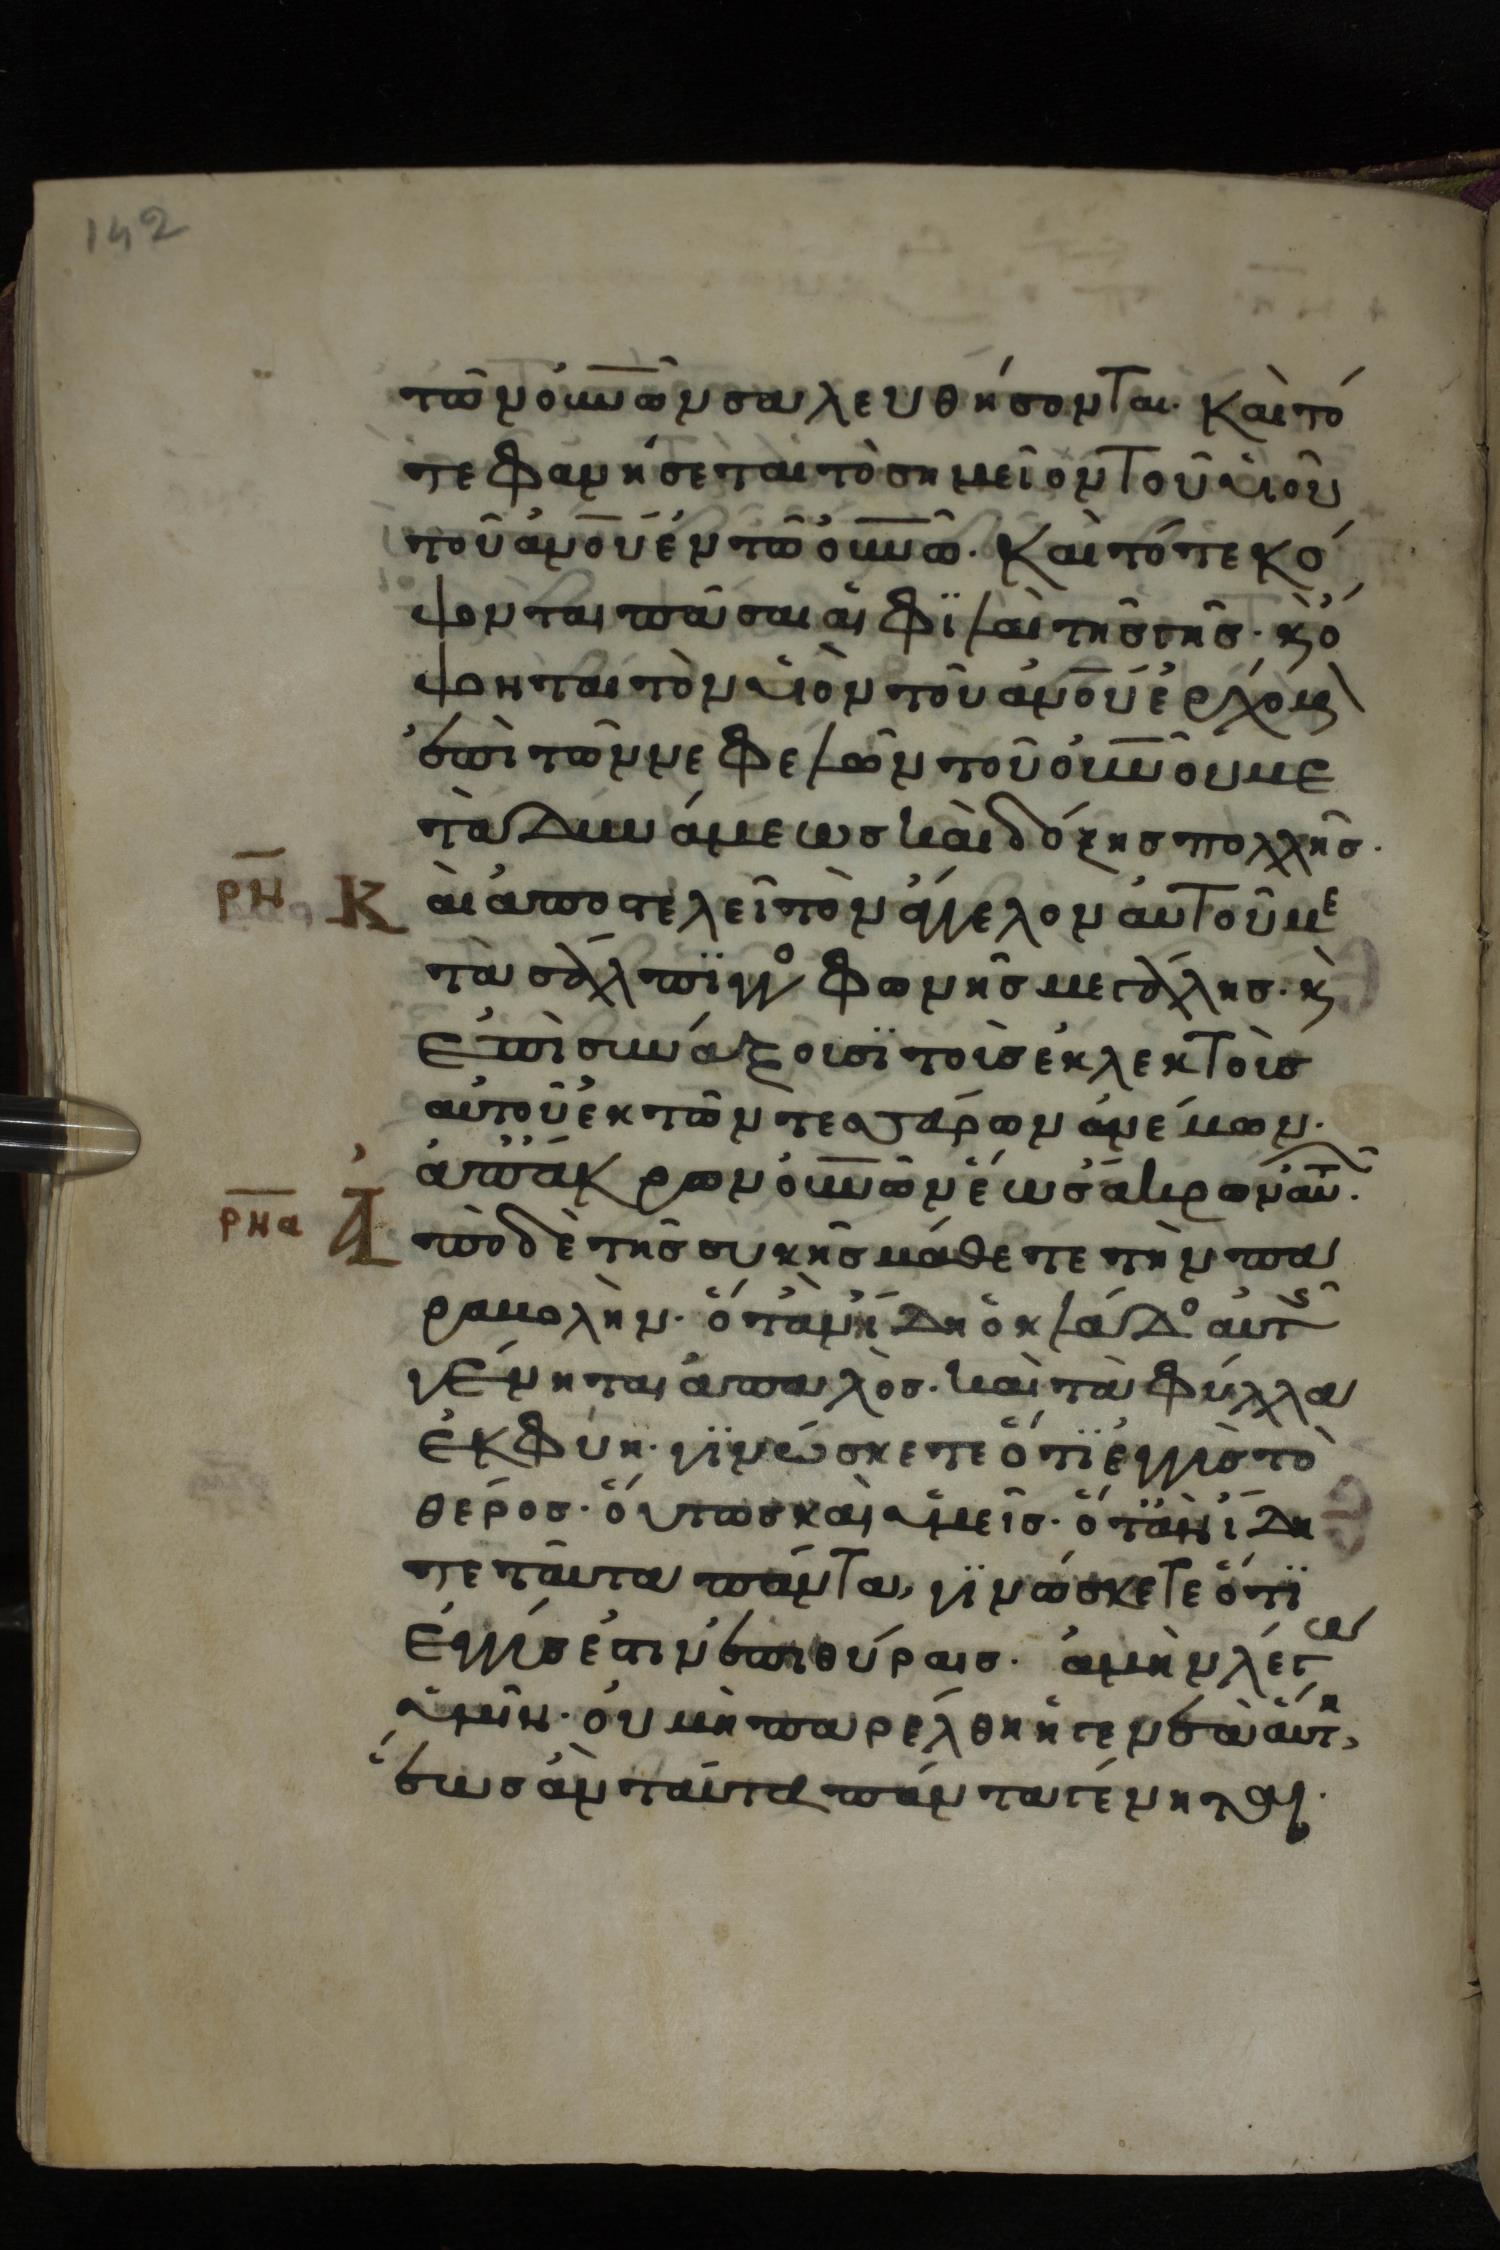 142
τῶν οὐνῶν σαλευθήσονται. Καὶ τό
τε φανήσεται τὸ σημεῖον τοῦ υἱοῦ
τοῦ ἀνοῦ ἐν τῶ οὐνῶ. Καὶ τότε κό
ψονται πᾶσαι αἱ φϊλαὶ τῆς γῆς. κ ὄ
ψονται τὸν υἱὸν τοῦ ἀνοῦ ἐρχόμ
ἐπὶ τῶν νεφελῶν τοῦ οὐνοῦ με
τὰ δυνάμεως καὶ δόξης πολλῆς.
ρμ Καὶ ἀποστελεῖ τὸν ἄγγελον αὐτοῦ με
τὰ σάλπϊγγο φωνῆς μεγάλης. κ
ἐπὶσυνάξουσϊ τοὶς ἐκλεκτοὶς
αὐτοῦ ἐκ τῶν τεσσάρων ἀνέμων.
ἀπ ἄκρων οὐνῶν ἕως ἄκρων αὐτ.
ρμα Ἀπὸ δὲ τῆς συκῆς μάθετε τὴν πα
ραβολὴν. ὅταν ἤδη ὁ κλάδο αὐτ
γένηται ἀπαλὸς. καὶ τὰ φύλλα
ἐκφύη. γϊνώσκετε ὅτϊ ἐγγὶς τὸ
θέρος. οὕτως καὶ ὑμεῖς. ὅταν ἴδη
τε ταῦτα πάντα, γϊνώσκετε ὅτϊ
ἐγγύς ἐστιν ἐπὶ θύραις. ἀμὴν λέγω
ὑμῖν. οὐ μὴ παρέλθη ἡ γενεὰ αὕτη,
ἕως ἂν ταῦτα πάντα γένηται.